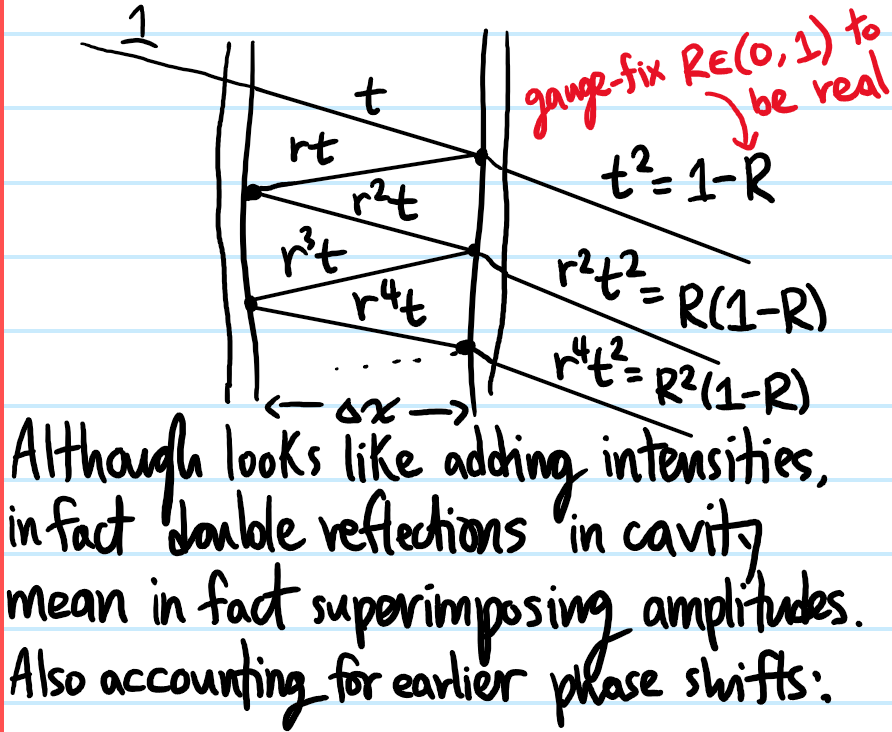 1
gauge-fix R∈(0,1) to
be real
t
t²=1-R
rt
r²t
r³t
r²t²=R(1-R)
r⁴t
r⁴t²=R²(1-R)
.....
← Δx →
Although looks like adding intensities,
in fact double reflections in cavity
mean in fact superimposing amplitudes.
Also accounting for earlier phase shifts: